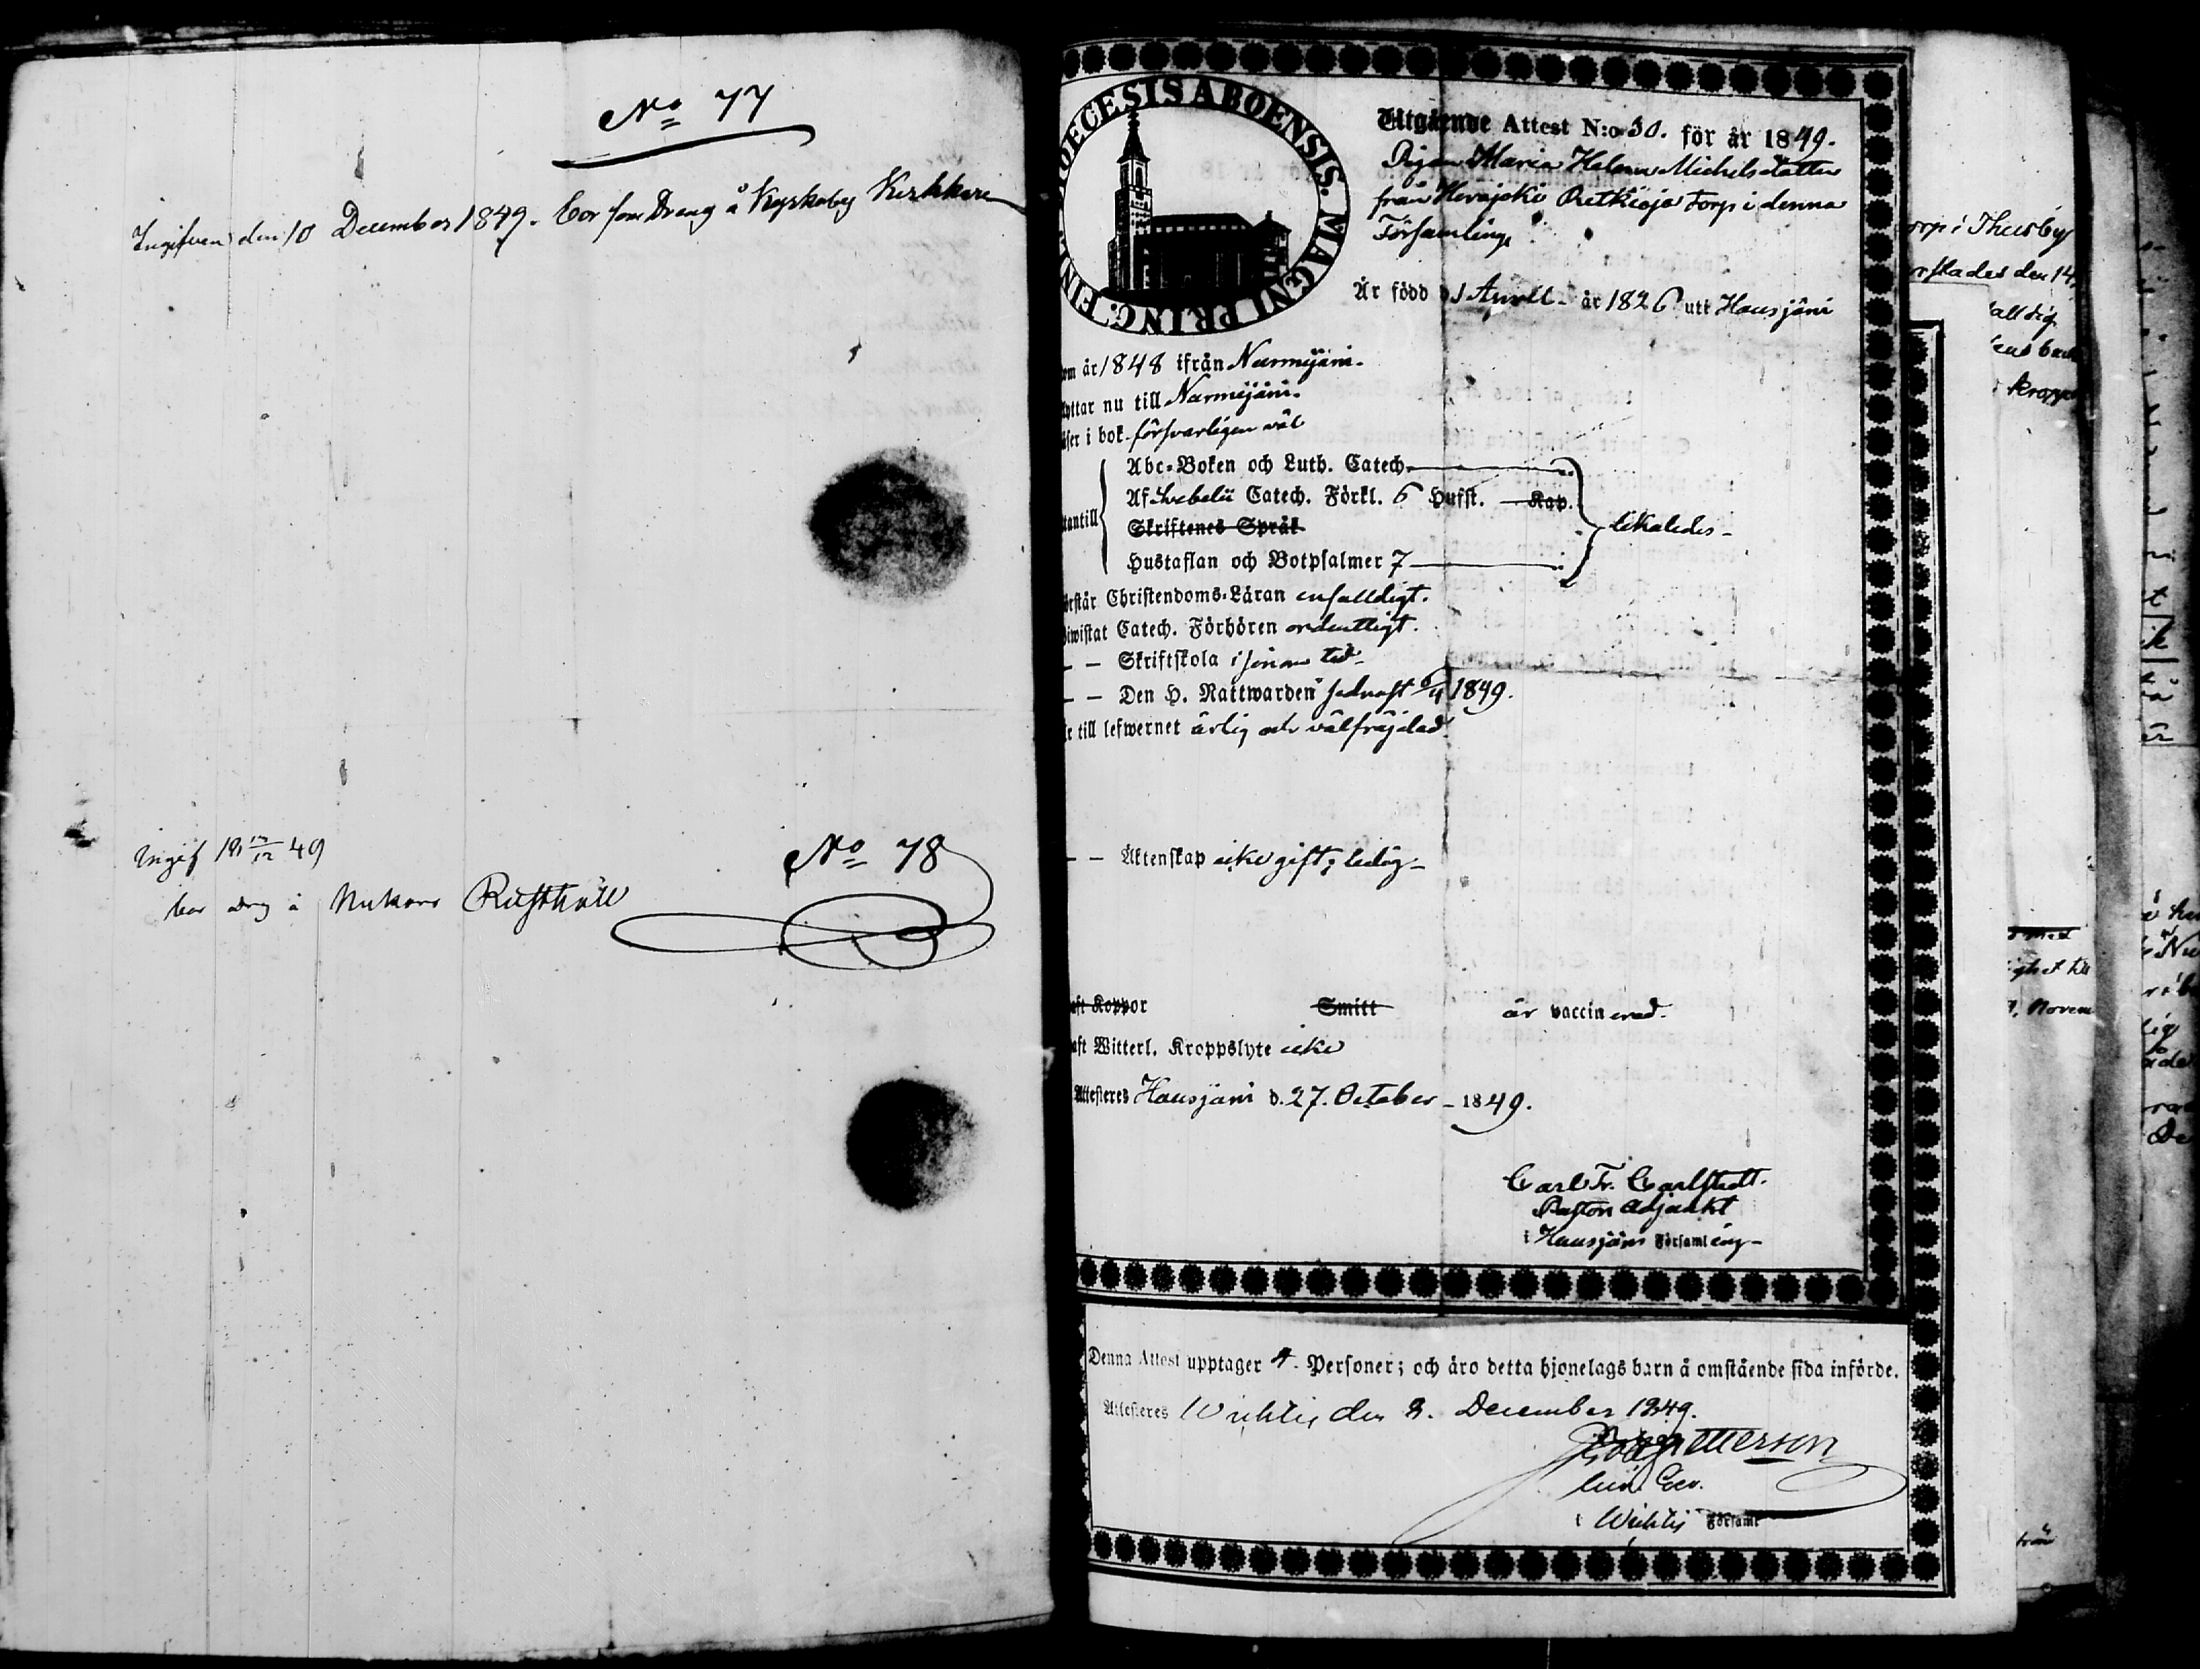 No 77
Ingifven den 10 December 1849. Bor som Dräng å Kyrkoby Kirkkari
Ingif 18 17/12 49
No 78
bor drg å Nukari Rusthåll
DIOECESIS ABOENSIS. MAGNI PRINC. FINL
Utgående Attest N:o 50. för år 1849.
Pigan Maria Helena Michelsdotter
från Herajoki Retkioja Torp i denna
Församling
Är född d 1 April - år 1826 uti Hausjärvi
om år 1848 ifrån Nurmijärvi.
lyttar nu till Nurmijärvi.
äser i bok försvarligen väl
Abc-Boken och Luth. Catech.
Af Svebelii Catech. Förkl. 6 Hufst. Kap.
tantill
Skriftenes Språk
likaledes -
Hustaflan och Botpsalmer 7
örstår Christendoms-Läran enfalldigt.
iwistat Catech. Förhören ordentligt.
— — Skriftskola i sinom tid
— — Den H. Nattwarden sednast 6/4 1849.
r till lefwernet ärlig och välfräjdad.
— — Äktenskap icke gift; ledig -
aft Koppor Smitt är vaccinerad.
aft Witterl. Kroppslyte icke
Attesteres Hausjärvi d. 27. October - 1849.
Carl Fr. Carlstedt.
Pastors Adjunkt
i Hausjärvi Församling -
Denna Attest upptager 4. Personer; och äro detta hjonelags barn å omstående sida införde.
Attesteres Wichtis den 2. December 1849.
Petterson
i Wichtis Församl
orp i Thusby
den 14
kropps
Novem
från